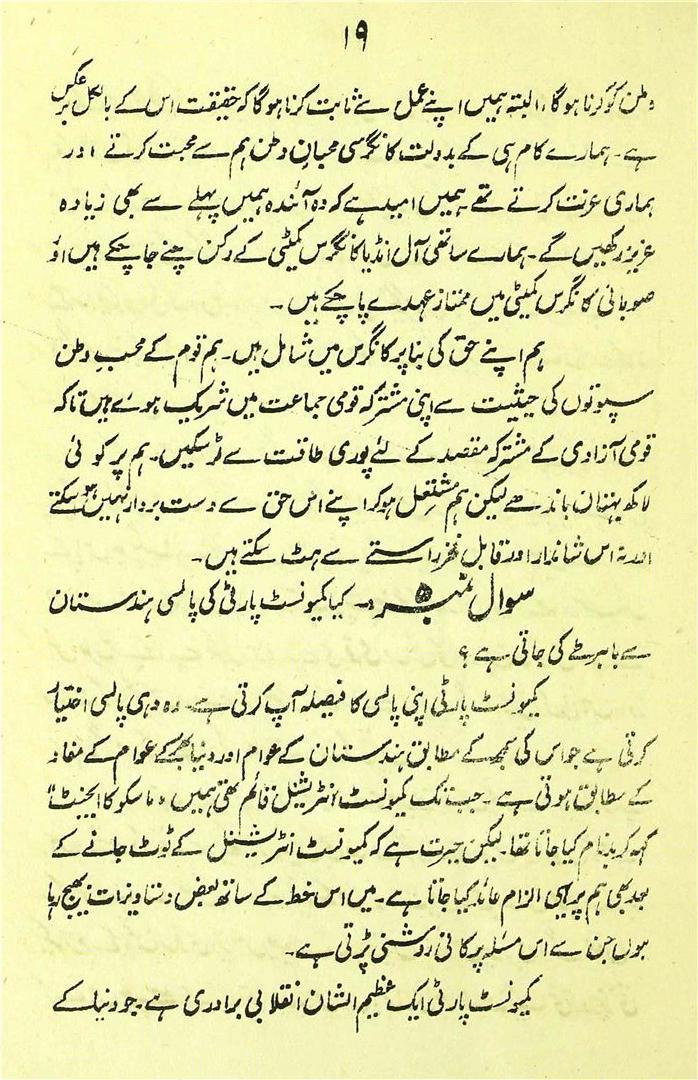 ۱۹
وطن کو کرنا ہوگا، البتہ ہمیں اپنے عمل سے ثابت کرنا ہوگا کہ حقیقت اس کے بالکل برعکس
ہے۔ ہمارے کام ہی کے بدولت کانگرسی محبانِ وطن ہم سے محبت کرتے اور
ہماری عزت کرتے تھے۔ ہمیں امید ہے کہ وہ آئندہ ہمیں پہلے سے بھی زیادہ
عزیز رکھیں گے۔ ہمارے ساتھی آل انڈیا کانگرس کمیٹی کے رکن چنے جا چکے ہیں اور
صوبائی کانگرس کمیٹی میں ممتاز عہدے پا چکے ہیں۔
ہم اپنے حق کی بنا پر کانگرس میں شامل ہیں۔ ہم قوم کے محب وطن
سپوتوں کی حیثیت سے اپنی مشترکہ قومی جماعت میں شریک ہوئے ہیں تاکہ
قومی آزادی کے مشترکہ مقصد کے لئے پوری طاقت سے لڑ سکیں۔ ہم پر کوئی
لاکھ بہتان باندھے لیکن ہم مشتعل ہو کر اپنے اس حق سے دست بردار نہیں ہو سکتے
اور نہ اس شاندار اور قابل فخر راستے سے ہٹ سکتے ہیں۔
سوال نمبر ۵۔ کیا کمیونسٹ پارٹی کی پالسی ہندستان
سے باہر طے کی جاتی ہے؟
کمیونسٹ پارٹی اپنی پالسی کا فیصلہ آپ کرتی ہے۔ وہ وہی پالسی اختیار
کرتی ہے جو اس کی سمجھ کے مطابق ہندستان کے عوام اور دنیا بھر کے عوام کے مفاد
کے مطابق ہوتی ہے۔ جب تک کمیونسٹ انٹرنیشنل قائم تھی ہمیں "ماسکو کا ایجنٹ"
کہہ کر بدنام کیا جاتا تھا۔ لیکن حیرت ہے کہ کمیونسٹ انٹرنیشنل کے ٹوٹ جانے کے
بعد بھی ہم پر یہی الزام عائد کیا جاتا ہے۔ میں اس خط کے ساتھ بعض دستاویزات بھیج رہا
ہوں جن سے اس مسئلہ پر کافی روشنی پڑتی ہے۔
کمیونسٹ پارٹی ایک عظیم الشان انقلابی برادری ہے۔ جو دنیا کے